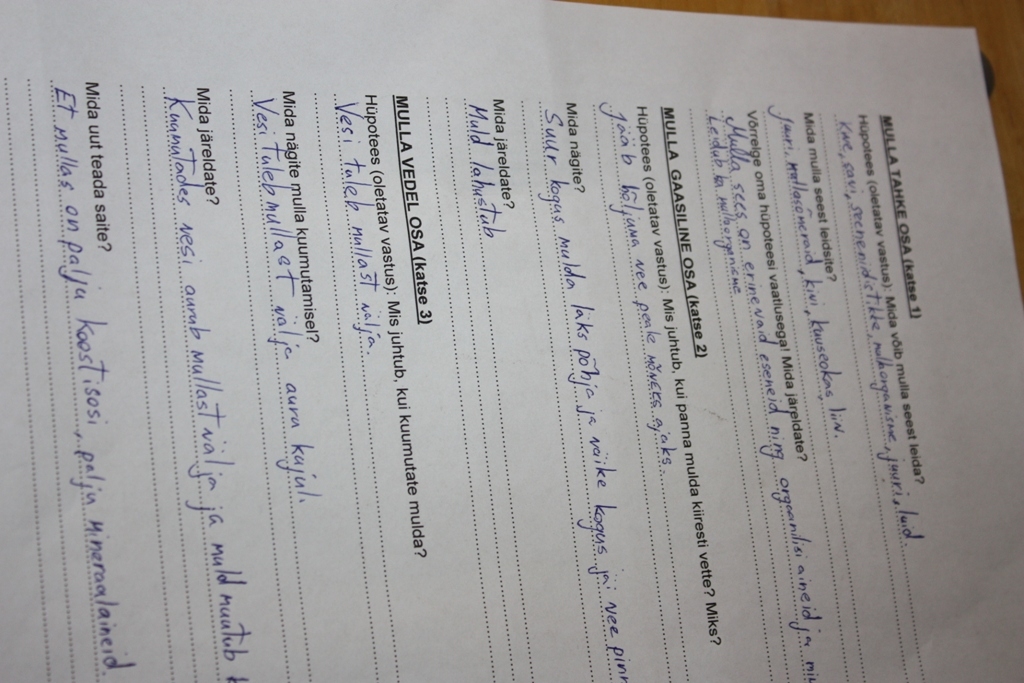 MULLA TAHKE OSA (katse 1)
Hüpotees (oletatav vastus): Mida võib mulla seest leida?
kive, savi, seeneniidistikke, mulhorganisme, juuri, luid.
Mida mulla seest leidsite?
Juuri, mullasõmeraid, kivi, kuuseokas, liiv.
Võrrelge oma hüpoteesi vaatlusega! Mida järeldate?
Mulla sees on erinevaid esemeid ning orgaanilisi aineid ja
Leidub ka mulhorganisme
MULLA GAASILINE OSA (katse 2)
Hüpotees (oletatav vastus): Mis juhtub, kui panna mulda kiiresti vette? Miks?
jääb hõljuma vee peale mõneks ajaks.
Mida nägite?
Suur kogus mulda läks põhja ja väike kogus jäi vee
Mida järeldate?
Muld lahustub
MULLA VEDEL OSA (katse 3)
Hüpotees (oletatav vastus): Mis juhtub, kui kuumutate mulda?
Vesi tuleb mullast välja.
Mida nägite mulla kuumutamisel?
Vesi tuleb mullast välja auru kujul.
Mida järeldate?
Kuumutades vesi aurub mullast välja ja muld muutub
Mida uut teada saite?
Et mullas on palju koostisosi, palju mineraalaineid.